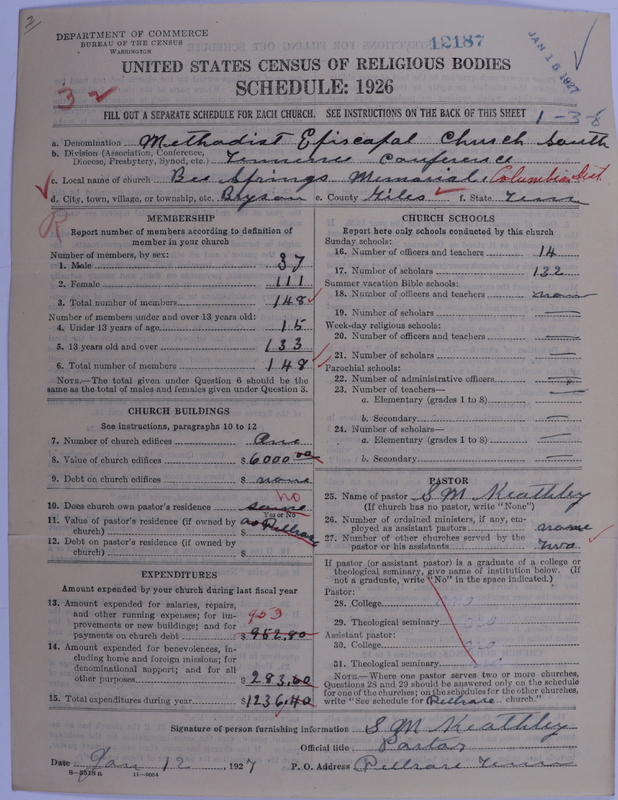 2
DEPARTMENT OF COMMERCE
BUREAU OF THE CENSUS
WASHINGTON
12187
JAN 18 1927
UNITED STATES CENSUS OF RELIGIOUS BODIES
SCHEDULE: 1926
32
FILL OUT A SEPARATE SCHEDULE FOR EACH CHURCH. SEE INSTRUCTIONS ON THE BACK OF THIS SHEET
1-3-8
a. Denomination Methodist Episcopal Church South
b. Division (Association, Conference, Diocese, Presbytery, Synod, etc.) Tennessee Conference
c. Local name of church Bee Springs Memorial, Columbia Dist.
d. City, town, village, or township, etc. Bryson e. County Giles f. State Tenn
R
MEMBERSHIP
Report number of members according to definition of
member in your church
Number of members, by sex:
1. Male 37
2. Female 111
3. Total number of members 148
Number of members under and over 13 years old:
4. Under 13 years of age 15
5. 13 years old and over 133
6. Total number of members 148
NOTE.—The total given under Question 6 should be the
same as the total of males and females given under Question 3.
CHURCH BUILDINGS
See instructions, paragraphs 10 to 12
7. Number of church edifices One
8. Value of church edifices $6000.00
9. Debt on church edifices $ none
no
10. Does church own pastor's residence
Yes or No
11. Value of pastor's residence (if owned by
church) $
12. Debt on pastor's residence (if owned by
church) $
EXPENDITURES
Amount expended by your church during last fiscal year
13. Amount expended for salaries, repairs,
and other running expenses; for im-
provements or new buildings; and for
payments on church debt $ 952.80
953
14. Amount expended for benevolences, in-
cluding home and foreign missions; for
denominational support; and for all
other purposes $ 283.00
15. Total expenditures during year $1236.40
CHURCH SCHOOLS
Report here only schools conducted by this church
Sunday schools:
16. Number of officers and teachers 14
17. Number of scholars 132
Summer vacation Bible schools:
18. Number of officers and teachers none
19. Number of scholars —
Week-day religious schools:
20. Number of officers and teachers —
21. Number of scholars —
Parochial schools:
22. Number of administrative officers —
23. Number of teachers—
a. Elementary (grades 1 to 8) —
b. Secondary —
24. Number of scholars—
a. Elementary (grades 1 to 8) —
b. Secondary —
PASTOR
25. Name of pastor S M Keathley
(If church has no pastor, write "None")
26. Number of ordained ministers, if any, em-
ployed as assistant pastors none
27. Number of other churches served by the
pastor or his assistants Two
If pastor (or assistant pastor) is a graduate of a college or
theological seminary, give name of institution below. (If
not a graduate, write "No" in the space indicated.)
Pastor:
28. College
29. Theological seminary
Assistant pastor:
30. College
31. Theological seminary
NOTE.—Where one pastor serves two or more churches,
Questions 28 and 29 should be answered only on the schedule
for one of the churches; on the schedules for the other churches,
write "See schedule for church."
Signature of person furnishing information S M Keathley
Official title Pastor
Date Jan 12, 1927 P. O. Address Tenn
8-5518 a 11-9084